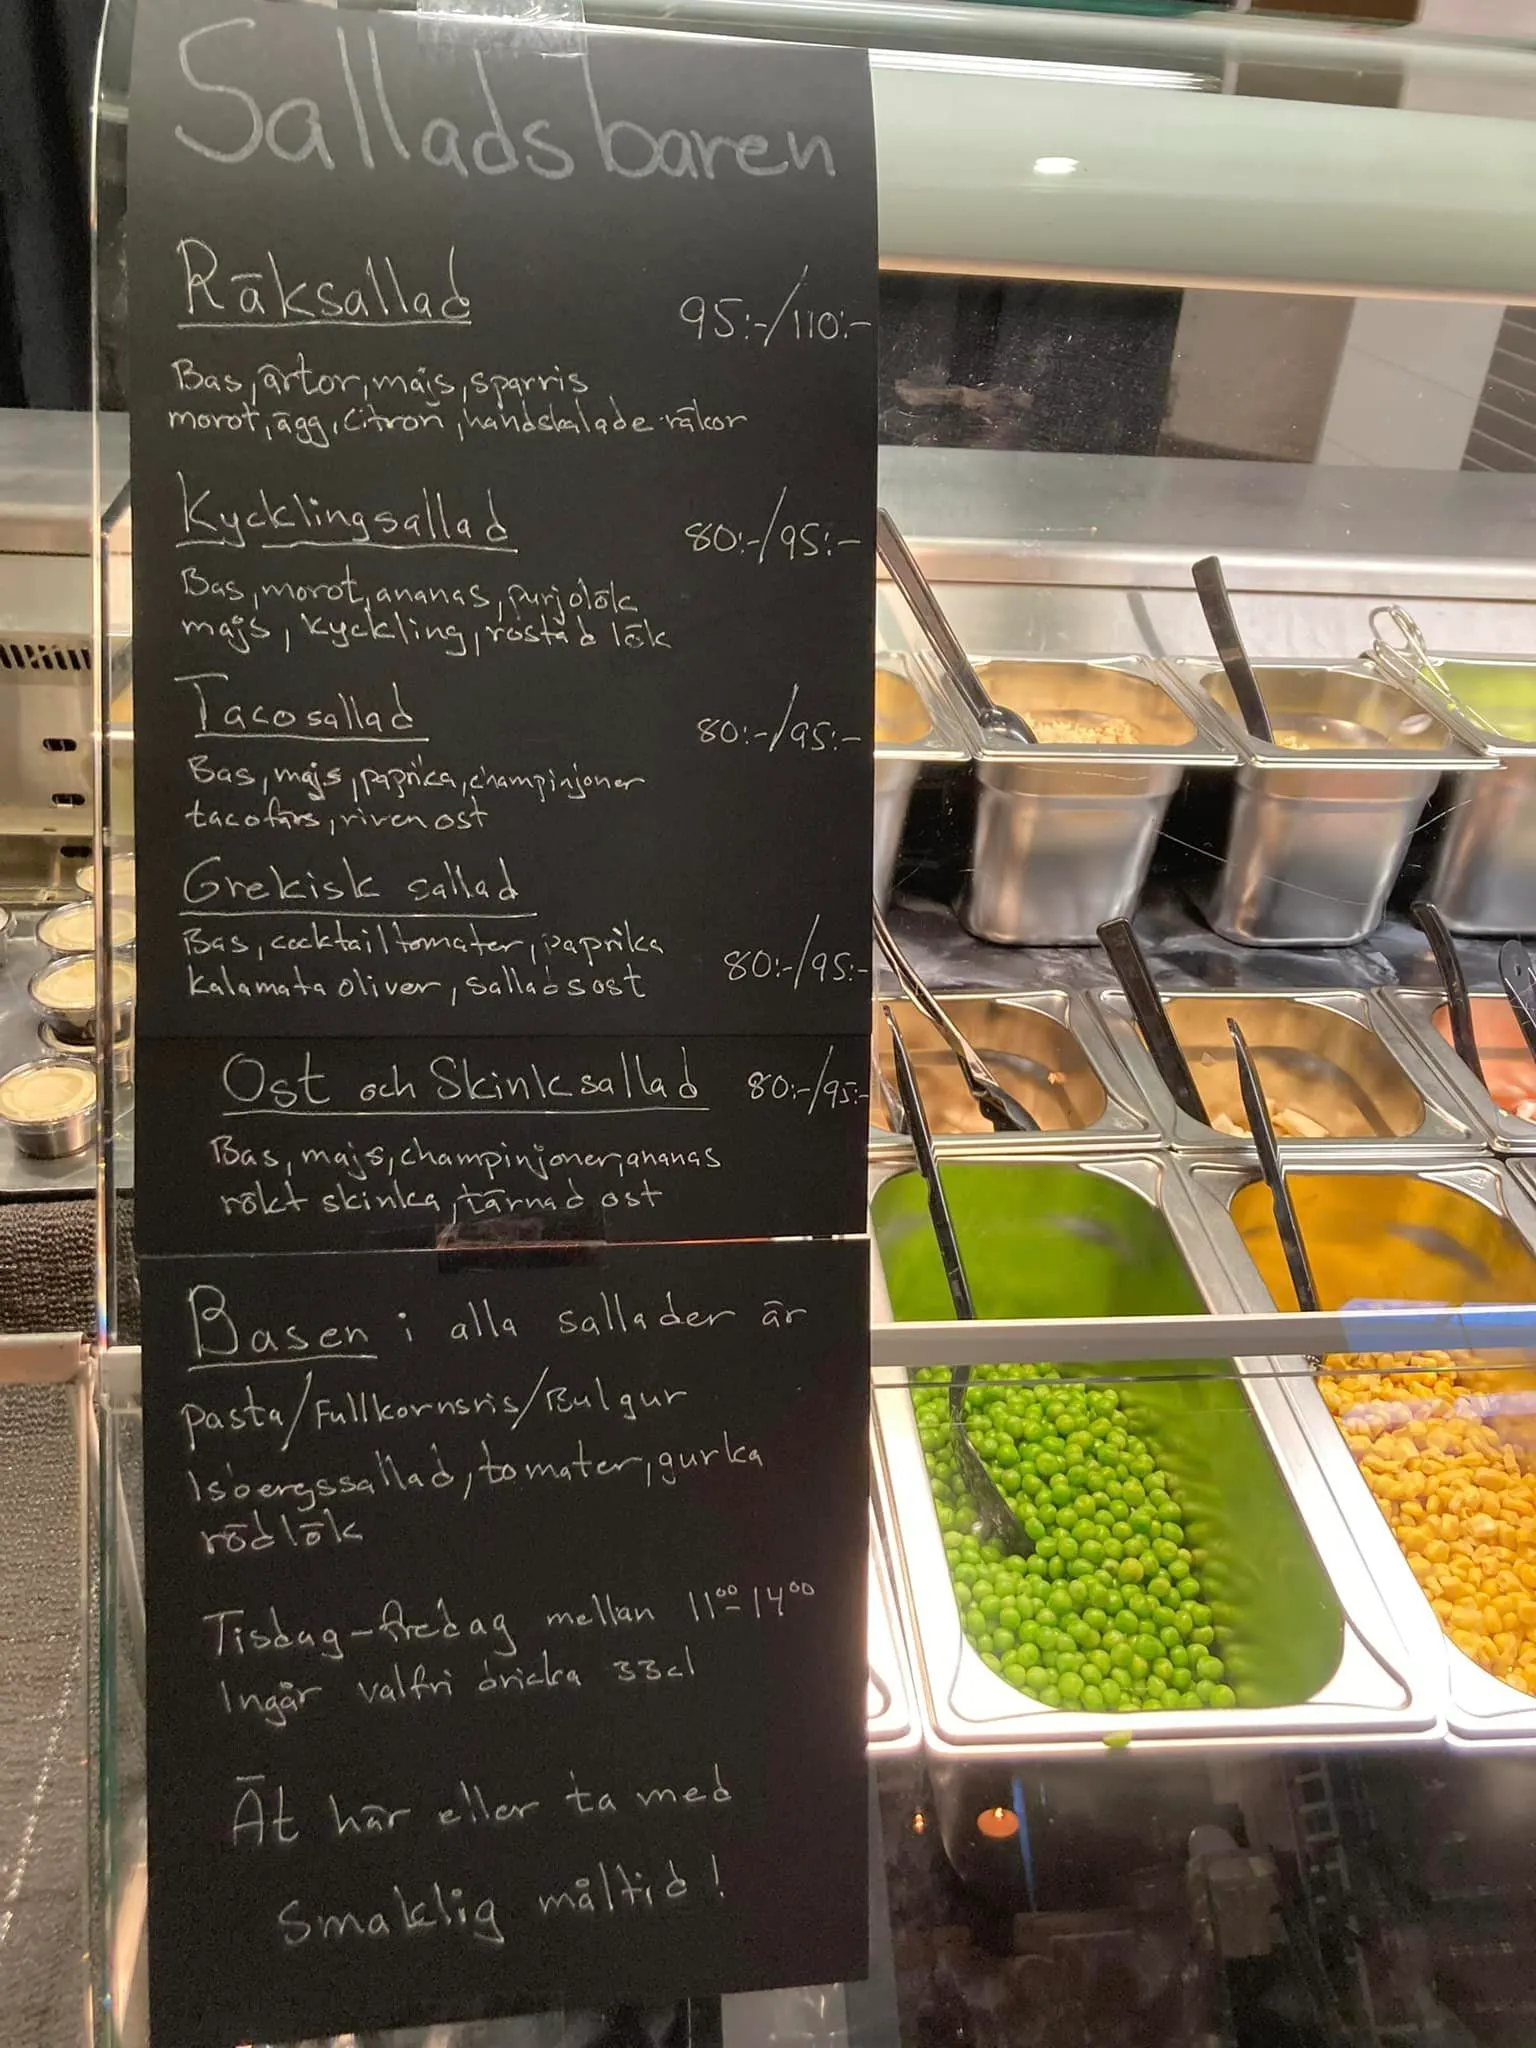 Salladsbaren
Räksallad 95:-/110:-
Bas, ärtor, majs, sparris
morot, ägg, citron, handskalade räkor
Kycklingsallad 80:-/95:-
Bas, morot, ananas, purjolök
majs, kyckling, rostad lök
Tacosallad 80:-/95:-
Bas, majs, paprika, champinjoner
tacofärs, riven ost
Grekisk sallad
Bas, cocktailtomater, paprika
kalamata oliver, salladsost 80:-/95:-
Ost och Skinksallad 80:-/95:-
Bas, majs, champinjoner, ananas
rökt skinka, tärnad ost
Basen i alla sallader är
pasta/Fullkornsris/Bulgur
Isbergssallad, tomater, gurka
rödlök
Tisdag-fredag mellan 1100-1400
Ingår valfri dricka 33cl
Ät här eller ta med
Smaklig måltid!